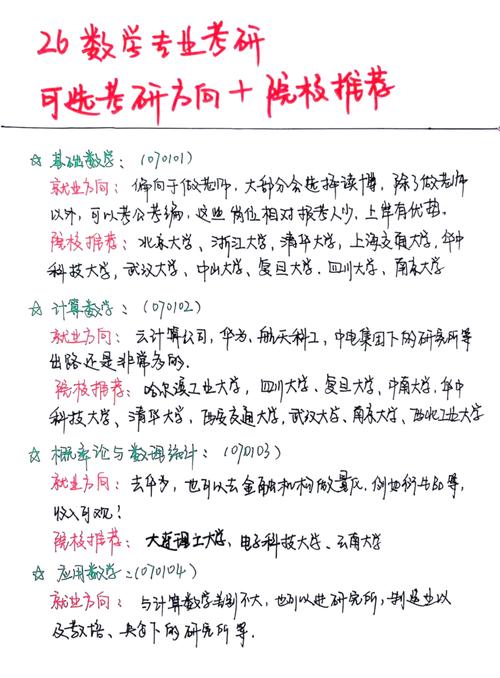 26数学专业考研
可选考研方向+院校推荐
☆ 基础数学：(070101)
就业方向：偏向于做老师，大部分会选择读博，除了做老师
以外，可以考公考编，这些岗位相对报考人少，上岸有优势。
院校推荐：北京大学、浙江大学、清华大学，上海交通大学，华中
科技大学，武汉大学、中山大学、复旦大学、四川大学、南京大学
☆ 计算数学：(070102)
就业方向：云计算公司，华为、航天科工，中电集团下的研究所等
出路还是非常多的.
院校推荐：哈尔滨工业大学，四川大学、复旦大学，中南大学，华中
科技大学、清华大学，西安交通大学，武汉大学、南京大学、西北工业大学
☆ 概率论与数理统计：(070103)
就业方向：去华为，也可以去金融机构做量化.例如衍生品等，
收入可观！
院校推荐：大连理工大学，电子科技大学、云南大学
☆ 应用数学：(070104)
就业方向：与计算数学差别不大，也可以进研究所，制造业以
及下的研究所等.